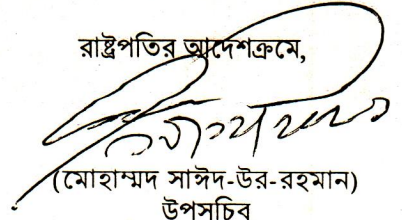 রাষ্ট্রপতির আদেশক্রমে,
(মোহাম্মদ সাঈদ-উর-রহমান)
উপসচিব